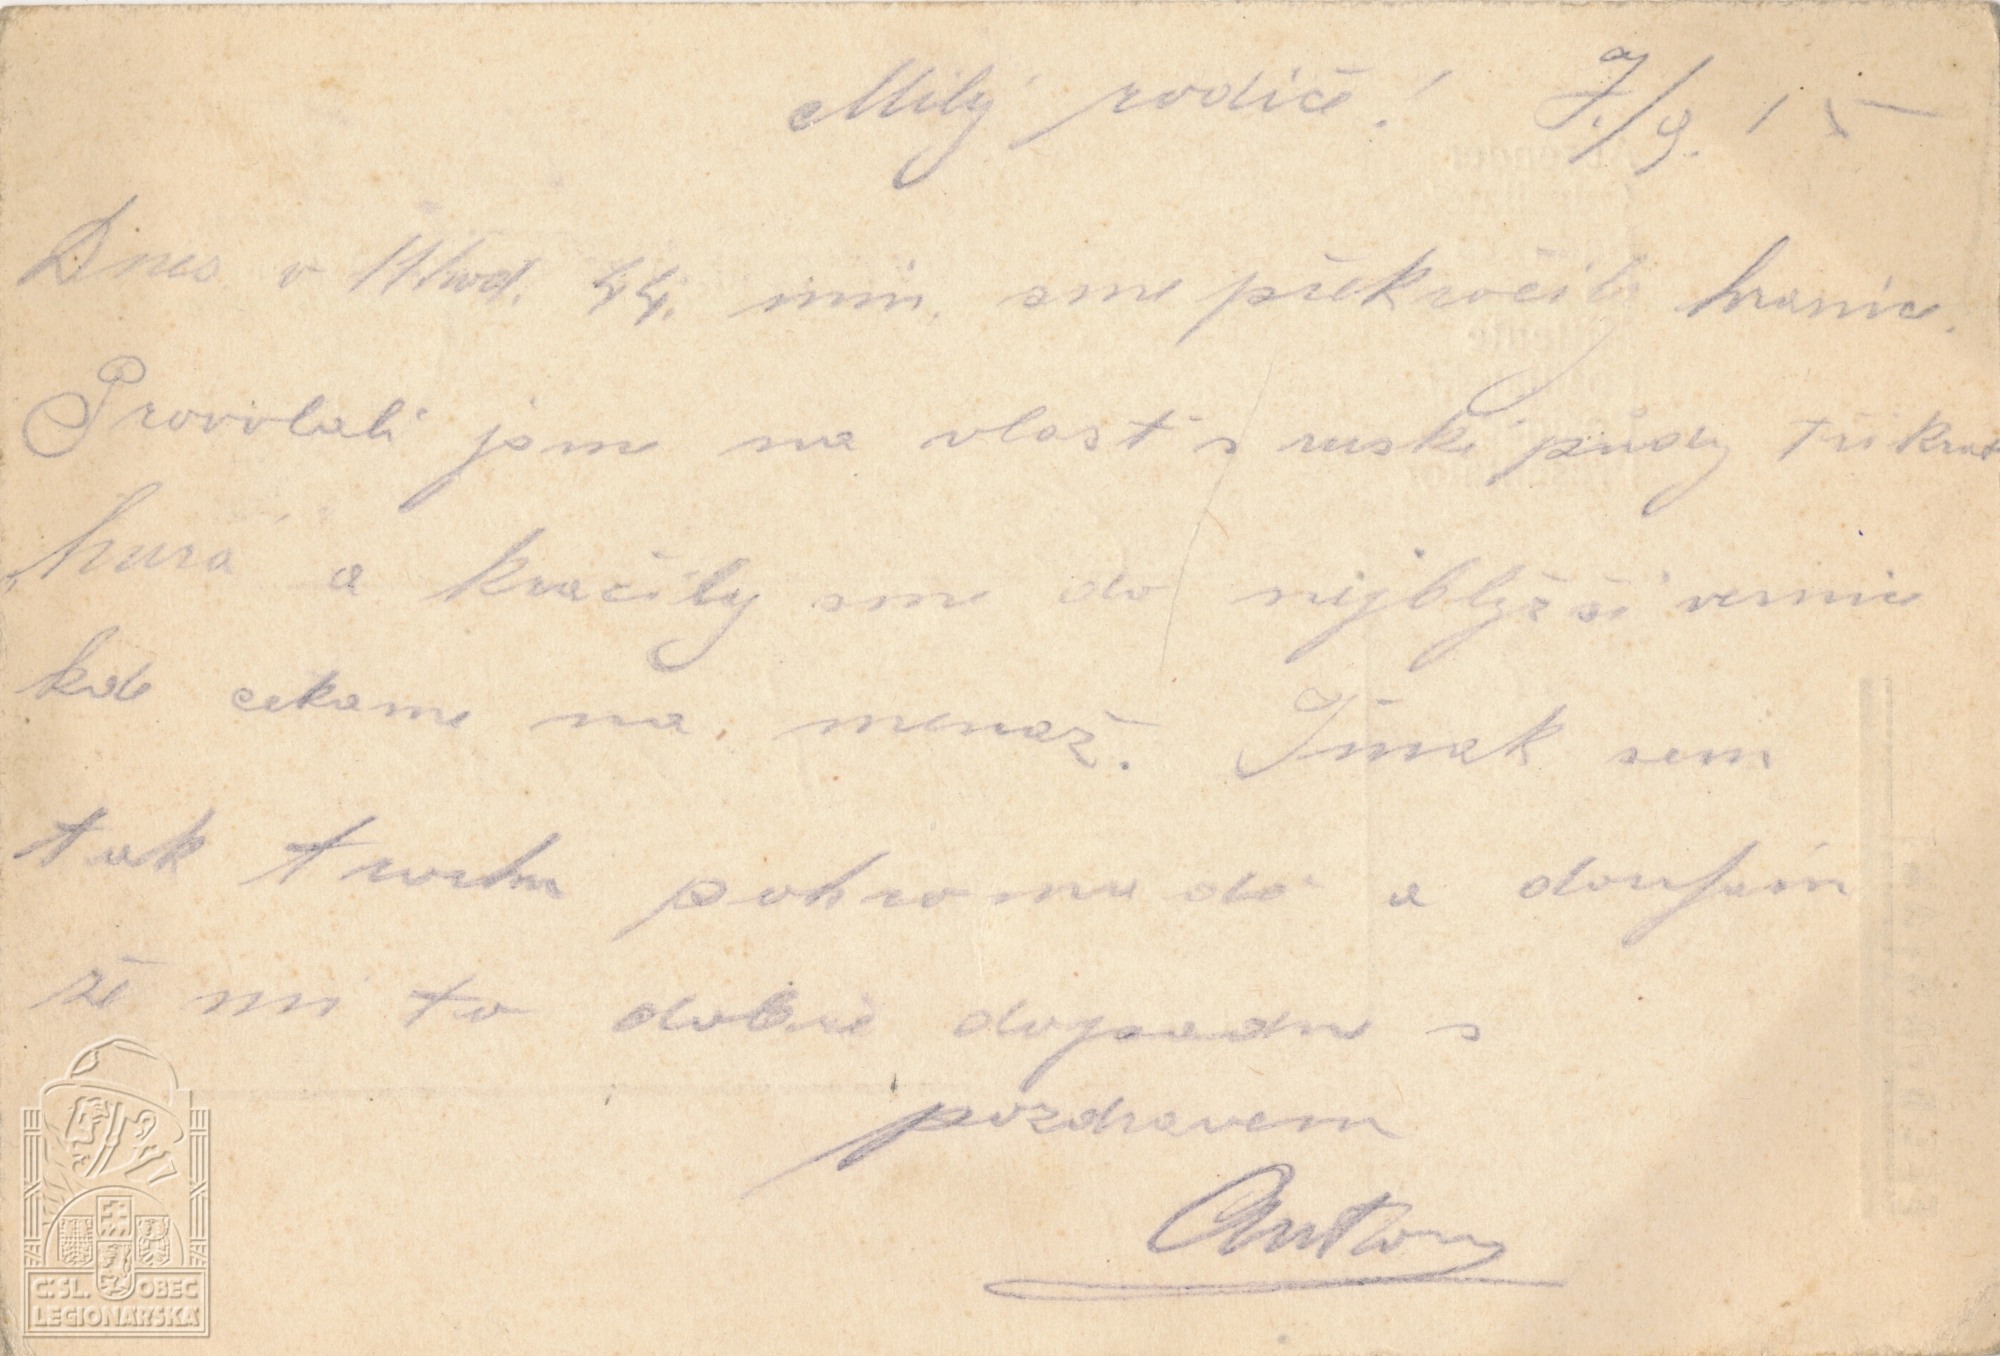 Milý rodiče! 7./9. 15
Dnes v 11 hod. 44. min. sme překročily hranice.
Provolali jsme na vlast s ruské půdy třikrat
hurá a kračily sme do nejblyžší vesnice
kde cekame na menaž. Jinak sem
tak trochu pohromadě a doufám
že mi to dobře dopadne s
pozdravem
Anton
Č. SL. OBEC
LEGIONÁŘSKÁ